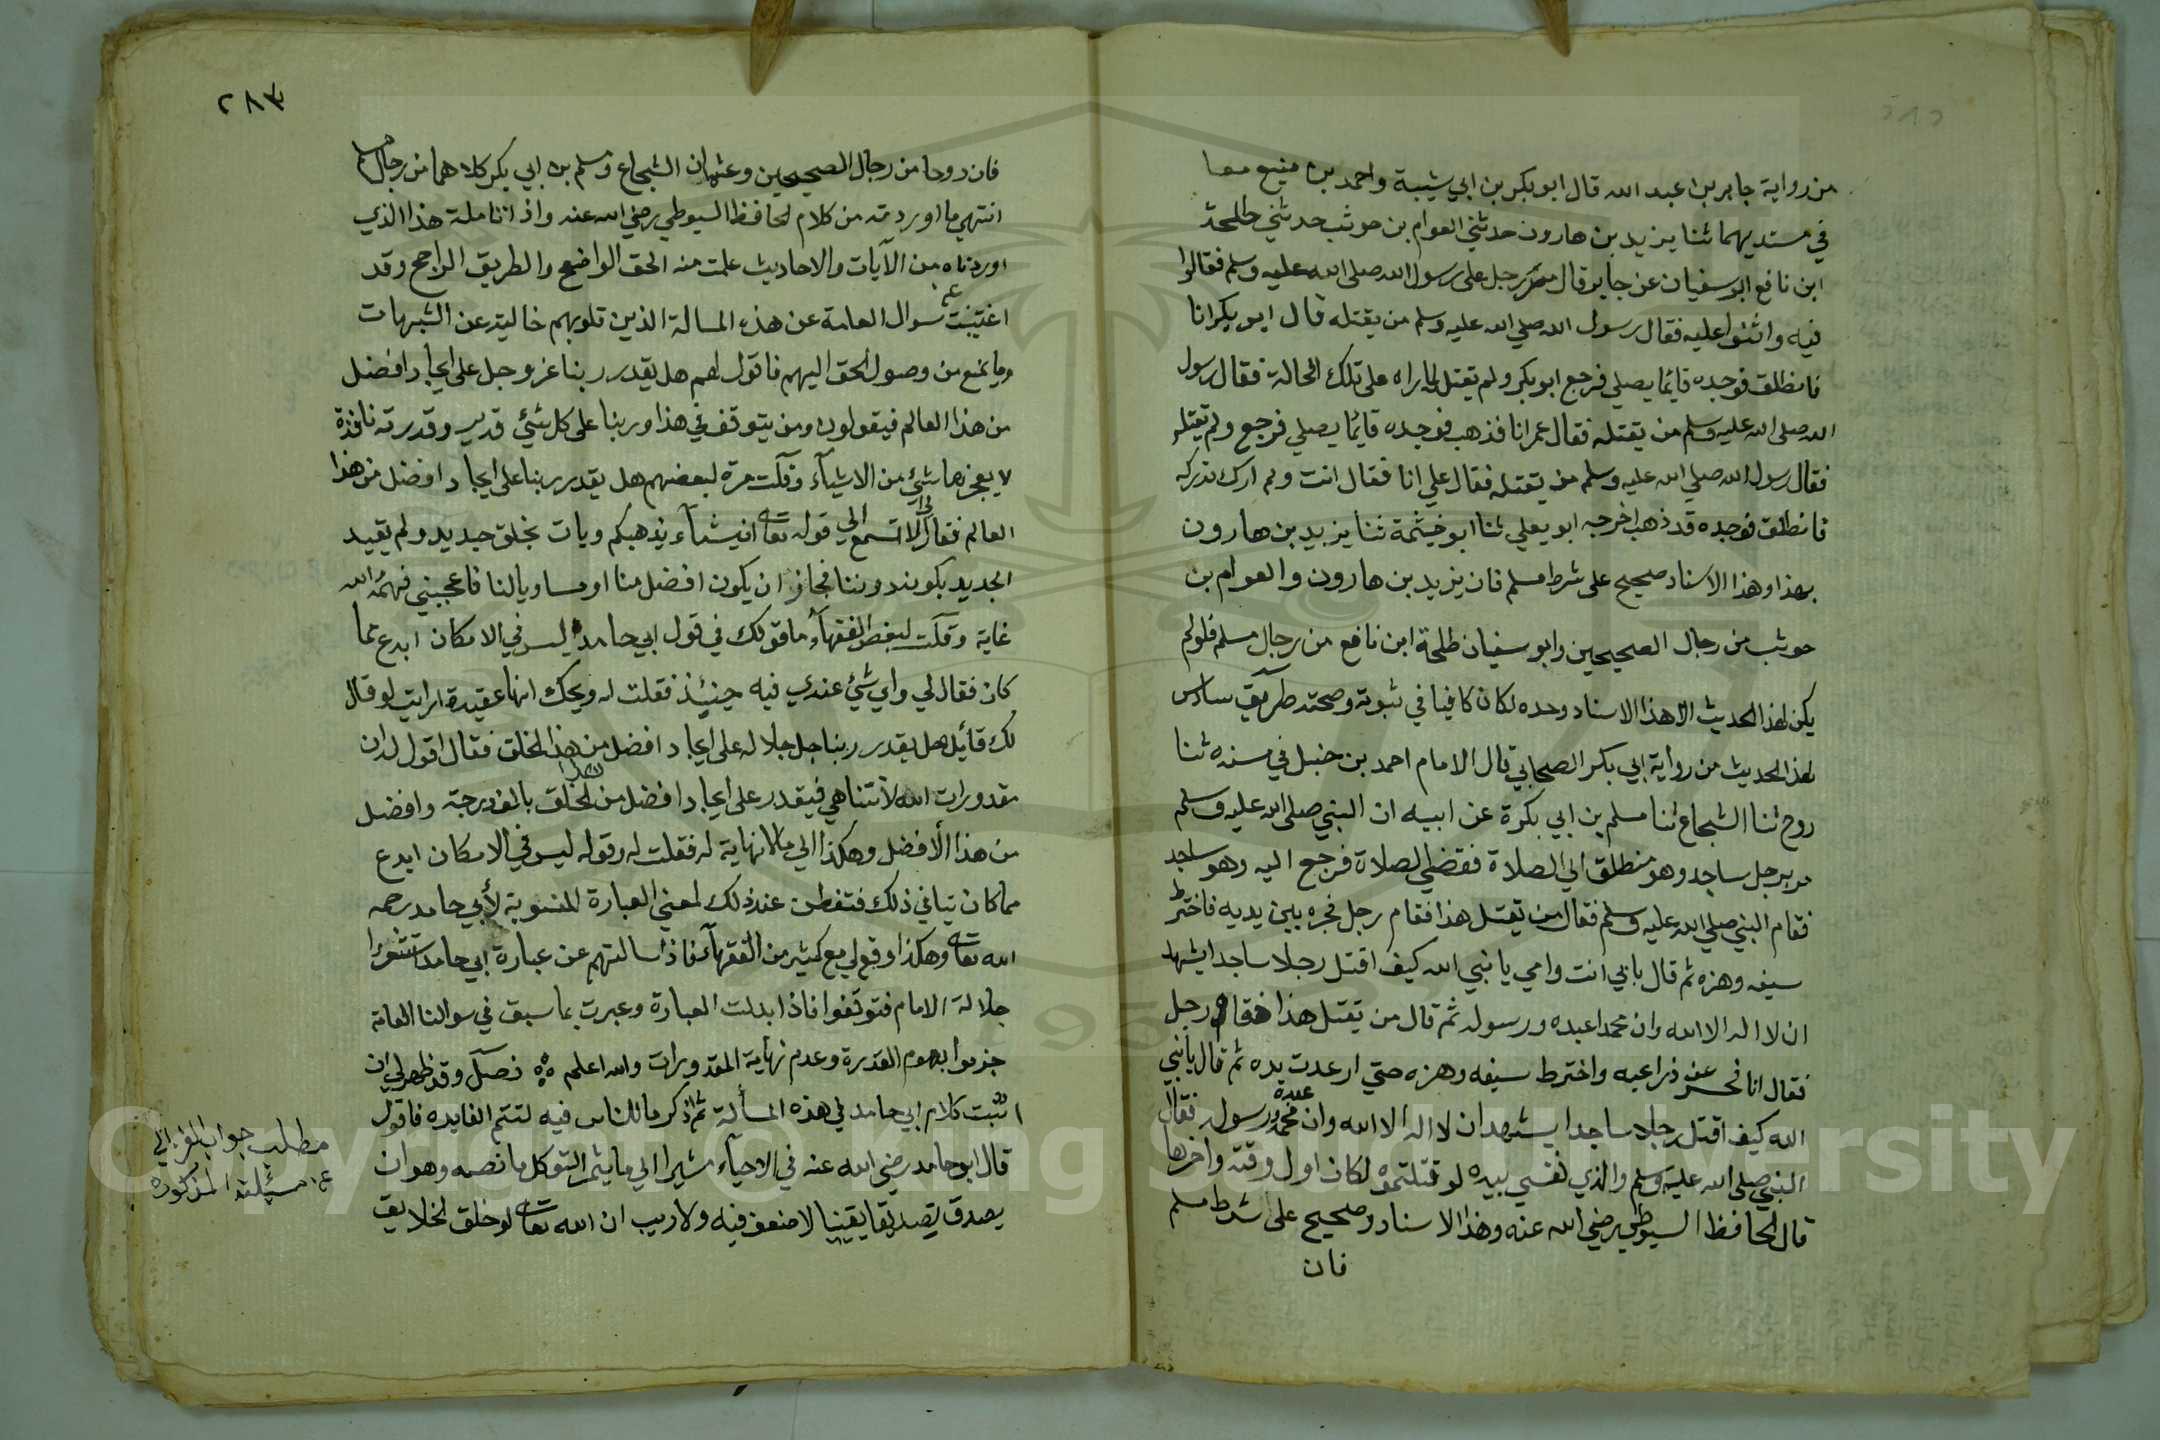 من رواية جابر بن عبد الله قال ابو بكر بن ابي شيبة واحمد بن منيع معا
في مسنديهما ثنا يزيد بن هارون حدثني العوام بن حوشب حدثني طلحة
ابن نافع ابو سفيان عن جابر قال مر رجل على رسول الله صلى الله عليه وسلم فقالوا
فيه واثنوا عليه فقال رسول الله صلي الله عليه وسلم من يقتله قال ابو بكر انا
فانطلق فوجده قايما يصلي فرجع ابو بكر ولم يقتله لما راه على تلك الحالة فقال رسول
الله صلى الله عليه وسلم من يقتله فقال عمر انا فذهب فوجده قايما يصلي فرجع ولم يقتله
فقال رسول الله صلي الله عليه وسلم من يقتله فقال علي انا فقال انت ولم ارك تدركه
فانطلق فوجده قد ذهب اخرجه ابو يعلي ثنا ابو خيثمة ثنا يزيد بن هارون
بهذا وهذا الاسناد صحيح على شرط مسلم فان يزيد بن هارون والعوام بن
حوشب من رجال الصحيحين وابو سفيان طلحة ابن نافع من رجال مسلم فلو لم
يكن لهذا الحديث الا هذا الاسناد وحده لكان كافيا في ثبوته وصحته طريق سادس
لهذا الحديث من رواية ابي بكر الصحابي قال الامام احمد بن حنبل في مسنده ثنا
روح ثنا الشجاع ثنا مسلم بن ابي بكرة عن ابيه ان النبي صلى الله عليه وسلم
مر برجل ساجد وهو منطلق الى الصلاة فقضي الصلاة فرجع اليه وهو ساجد
فقام النبي صلي الله عليه وسلم فقال من يقتل هذا فقام رجل فجره بين يديه فاخترط
سيفه وهزه ثم قال بابي انت وامي يا نبي الله كيف اقتل رجلا ساجدا يشهد
ان لا اله الا الله وان محمدا عبده ورسوله ثم قال من يقتل هذا فقام رجل
فقال انا فحسر عن ذراعيه واخترط سيفه وهزه حتي ارعدت يده ثم قال يا نبي
الله كيف اقتل رجلا ساجدا يشهد ان لا اله الا الله وان محمدا عبده ورسوله فقال
النبي صلى الله عليه وسلم والذي نفسي بيده لو قتلتموه لكان اول وقته واخرها
قال الحافظ السيوطي رضي الله عنه وهذا الاسناد صحيح على شرط مسلم
فان
٢٨٣
فان روحا من رجال الصحيحين وعثمان الشجاع ومسلم بن ابي بكر كلاهما من رجال مسلم
انتهي ما اوردته من كلام الحافظ السيوطي رضي الله عنه واذا تاملت هذا الذي
اوردناه من الآيات والاحاديث علمت منه الحق الواضح والطريق الراجح وقد
سوال العامة عن هذه المسالة الذين قلوبهم خالية عن الشبهات
وما يمنع من وصول الحق اليهم فاقول لهم هل يقدر ربنا عز وجل على ايجاد افضل
من هذا العالم فيقولون ومن يتوقف في هذا وربنا على كل شئي قدير وقدرته نافذة
لا يعجزها شئي من الاشيآء وقلت مرة لبعضهم هل يقدر ربنا على ايجاد افضل من هذا
العالم فقال لي الا تسمع الي قوله تعالى ان يشآء يذهبكم ويات بخلق جديد ولم يقيد
الجديد بكونه دوننا فجاز ان يكون افضل منا او مساويا لنا فاعجبني فهمه الله
غاية وقلت لبعض الفقهآء ما قولك في قول ابي حامد ليس في الامكان ابدع مما
كان فقال لي واي شئي عندي فيه حينئذ فقلت له ويحك انها عقيدة ارايت لو قال
لك قائل هل يقدر ربنا جل جلاله على ايجاد افضل من هذا الخلق فقال اقول له ان
مقدورات الله لا تتناهي فيقدر على ايجاد افضل من هذا الخلق بالف درجة وافضل
من هذا الأفضل وهكذا الي ما لا نهاية له فقلت له وقوله ليس في الامكان ابدع
مما كان ينافي ذلك فتفطن عند ذلك لمعني العبارة المنسوبة لأبي حامد رحمه
الله تعالى وهكذا وقع لي مع كثير من الفقهآء فاذا سالتهم عن عبارة ابي حامد استشعروا
جلالة الامام فتوقفوا فاذا ابدلت العبارة وعبرت بما سبق في سوالنا العامة
جزموا بعموم القدرة وعدم نهاية المقدورات والله اعلم فصل وقد ظهر لي ان
اثبت كلام ابي حامد في هذه المسألة ثم اذكر ما للناس فيه لتتم الفايده فاقول
قال ابو حامد رضي الله عنه في الاحيآء مشيرا الي ما يثمر التوكل ما نصه وهو ان
يصدق تصديقا يقينيا لا ضعف فيه ولا ريب ان الله تعالى لو خلق الخلايق
مطلب جواب الغزالي
عن مسئلته المذكورة
Copyright © King Saud University